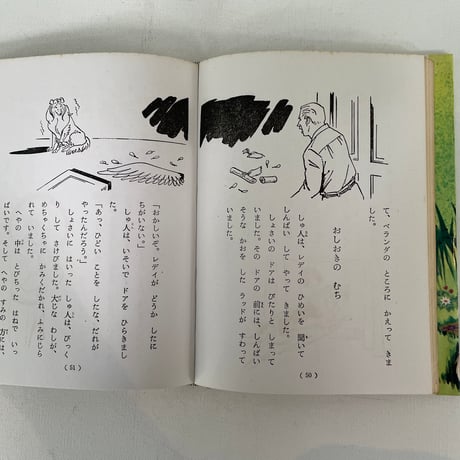 て、ベランダの ところに かえって きま
した。
おしおきの むち
しゅ人は、レディの ひめいを 聞いて
しんぱい して やって きました。
しょさいの ドアは ぴたりと しまって
いました。その ドアの 前には、しんぱい
そうな かおを した ラッドが すわって
いました。
(50)
「おかしいぞ。レディが どうか したに
ちがいない。」
しゅ人は、いそいで ドアを ひらきまし
た。
「あっ、ひどい ことを したな。だれが
やったんだろう。」
しょさいに はいった しゅ人は、びっく
り して さけびました。大じな わしが、
めちゃくちゃに かみくだかれ、ふみにじら
れて いました。
へやの 中は とびちった はねで いっ
ぱいです。そして へやの すみの 方には、
(51)